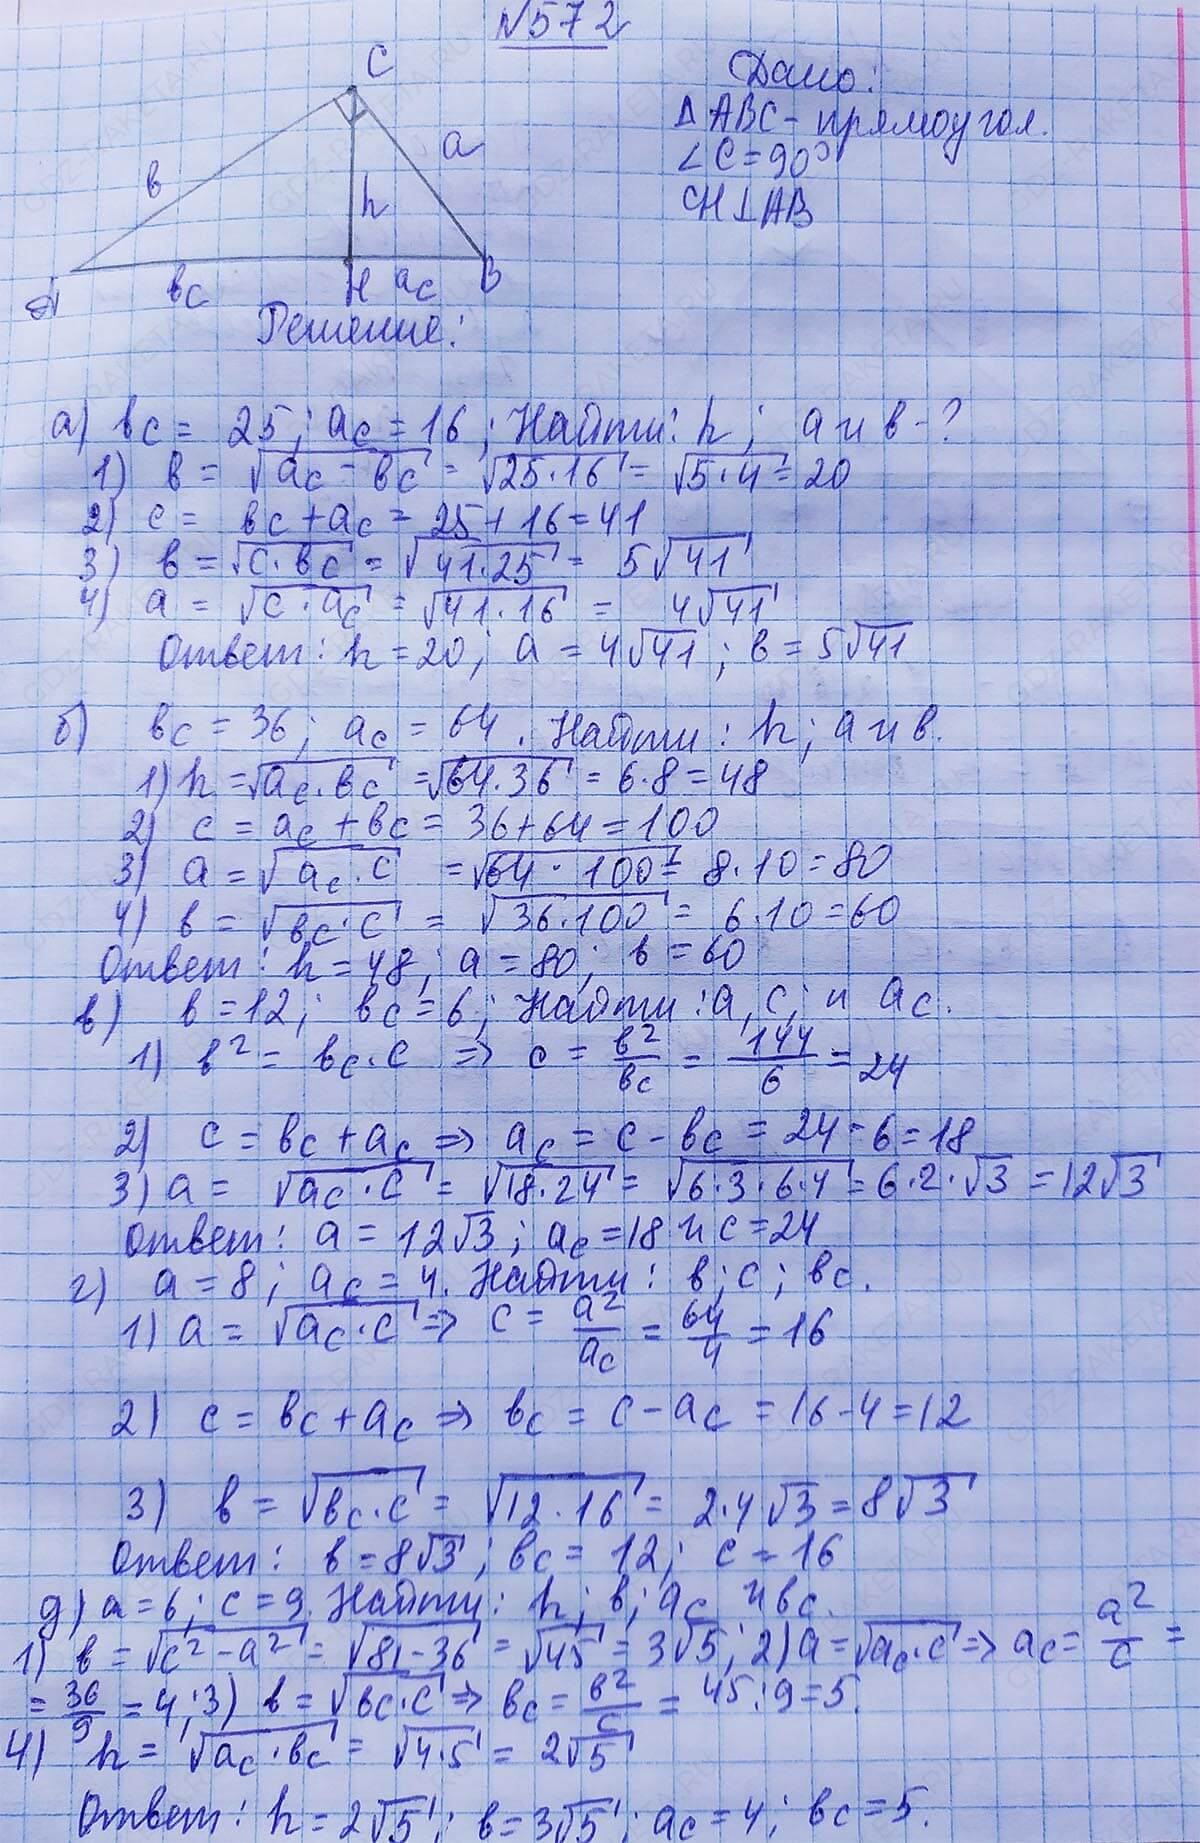 №572
C
в
a
h
A
вc
H
ac
B
Дано:
ΔABC - прямоугол.
∠C = 90°
CH⊥AB
Решение:
а) вc = 25; ac = 16; Найти: h; a и в - ?
1) в = √ac - вc = √25·16 = √5·4 = 20
2) c = вc + ac = 25 + 16 = 41
3) в = √c·вc = √41·25 = 5√41
4) a = √c·ac = √41·16 = 4√41
Ответ: h = 20; a = 4√41; в = 5√41
б) вc = 36; ac = 64. Найти: h; a и в.
1) h = √ac·вc = √64·36 = 6·8 = 48
2) c = ac + вc = 36 + 64 = 100
3) a = √ac·c = √64·100 = 8·10 = 80
4) в = √вc·c = √36·100 = 6·10 = 60
Ответ: h = 48; a = 80; в = 60
в) в = 12; вc = 6; Найти: a, c, и ac.
1) в² = вc·c => c = в²/вc = 144/6 = 24
2) c = вc + ac => ac = c - вc = 24 - 6 = 18
3) a = √ac·c = √18·24 = √6·3·6·4 = 6·2·√3 = 12√3
Ответ: a = 12√3; ac = 18 и c = 24
г) a = 8; ac = 4. Найти: в; c; вc.
1) a = √ac·c => c = a²/ac = 64/4 = 16
2) c = вc + ac => вc = c - ac = 16 - 4 = 12
3) в = √вc·c = √12·16 = 2·4√3 = 8√3
Ответ: в = 8√3; вc = 12; c = 16
д) a = 6; c = 9. Найти: h; в; ac и вc.
1) в = √c² - a² = √81 - 36 = √45 = 3√5; 2) a = √ac·c => ac = a²/c =
= 36/9 = 4; 3) в = √вc·c => вc = в²/c = 45:9 = 5.
4) h = √ac·вc = √4·5 = 2√5
Ответ: h = 2√5; в = 3√5; ac = 4; вc = 5.